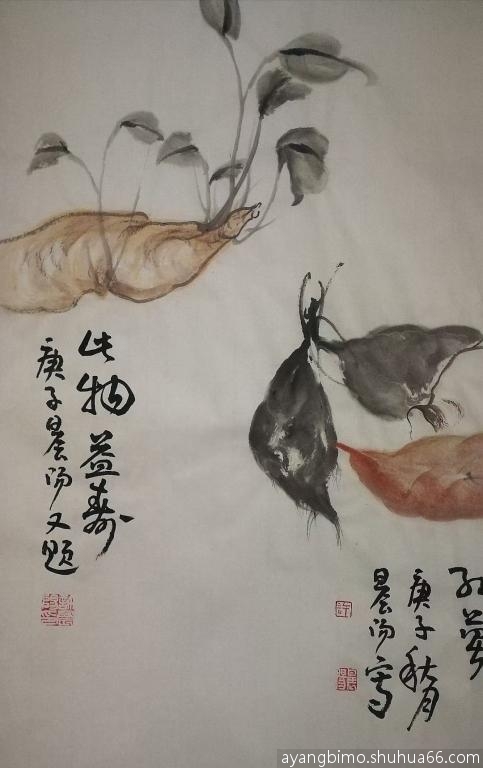 此物益寿
庚子晨阳又题
红薯
庚子秋月
晨阳写
ayangbimo.shuhua66.com